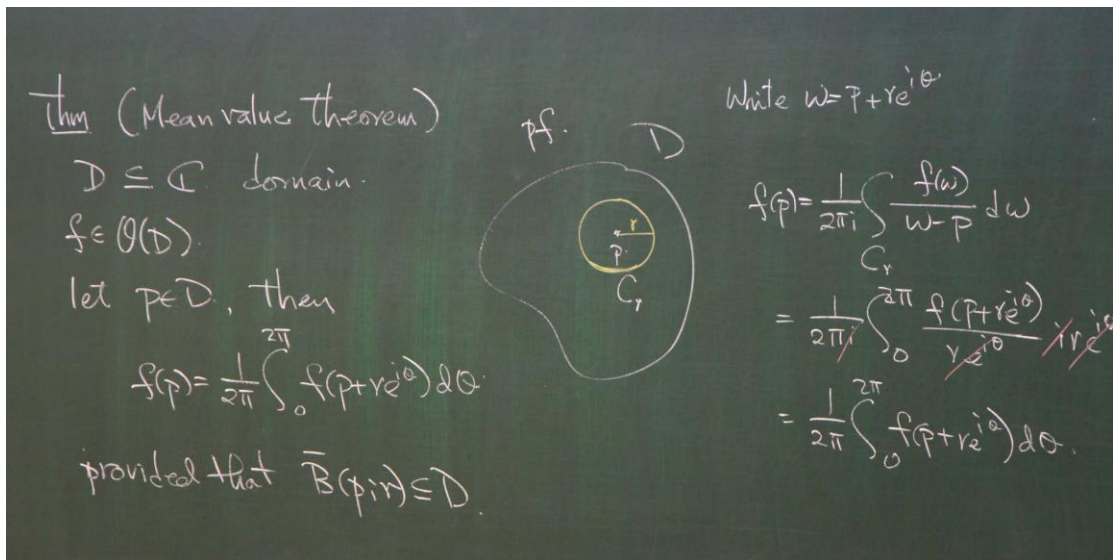 Thm (Mean value theorem)
D ⊆ ℂ domain.
f ∈ O(D).
let p∈D, then
f(p) = 1/2π ∫₀^2π f(p+re^iθ) dθ
provided that B̄(p;r) ⊆ D.
pf. D
r
p.
C_r
Write w = p + re^iθ
f(p) = 1/2πi ∫_C_r f(w)/(w-p) dw
= 1/2πi ∫₀^2π f(p+re^iθ)/re^iθ ire^iθ
= 1/2π ∫₀^2π f(p+re^iθ) dθ.